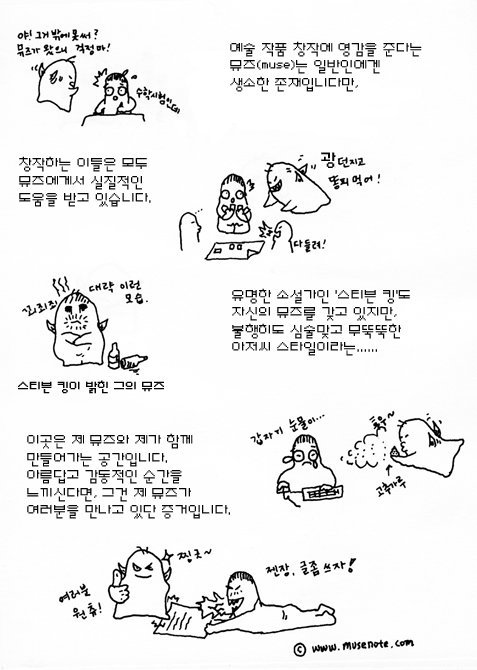 야! 그거 밖에 못써?
뮤즈가 왔으니 걱정마!
수학시험인데
예술 작품 창작에 영감을 준다는
뮤즈(muse)는 일반인에겐
생소한 존재입니다만,
창작하는 이들은 모두
뮤즈에게서 실질적인
도움을 받고 있습니다.
광 던지고
똥피 먹어!
다들려!
대략 이런
모습.
유명한 소설가인 '스티븐 킹'도
자신의 뮤즈를 갖고 있지만,
불행히도 심술맞고 무뚝뚝한
아저씨 스타일이라는......
스티븐 킹이 밝힌 그의 뮤즈
이곳은 제 뮤즈와 제가 함께
만들어가는 공간입니다.
아름답고 감동적인 순간을
느끼신다면, 그건 제 뮤즈가
여러분을 만나고 있단 증거입니다.
갑자기 눈물이...
후우~
고춧가루
찡긋~
여러분
원츄!
젠장, 글좀 쓰자!
© www.musenote.com